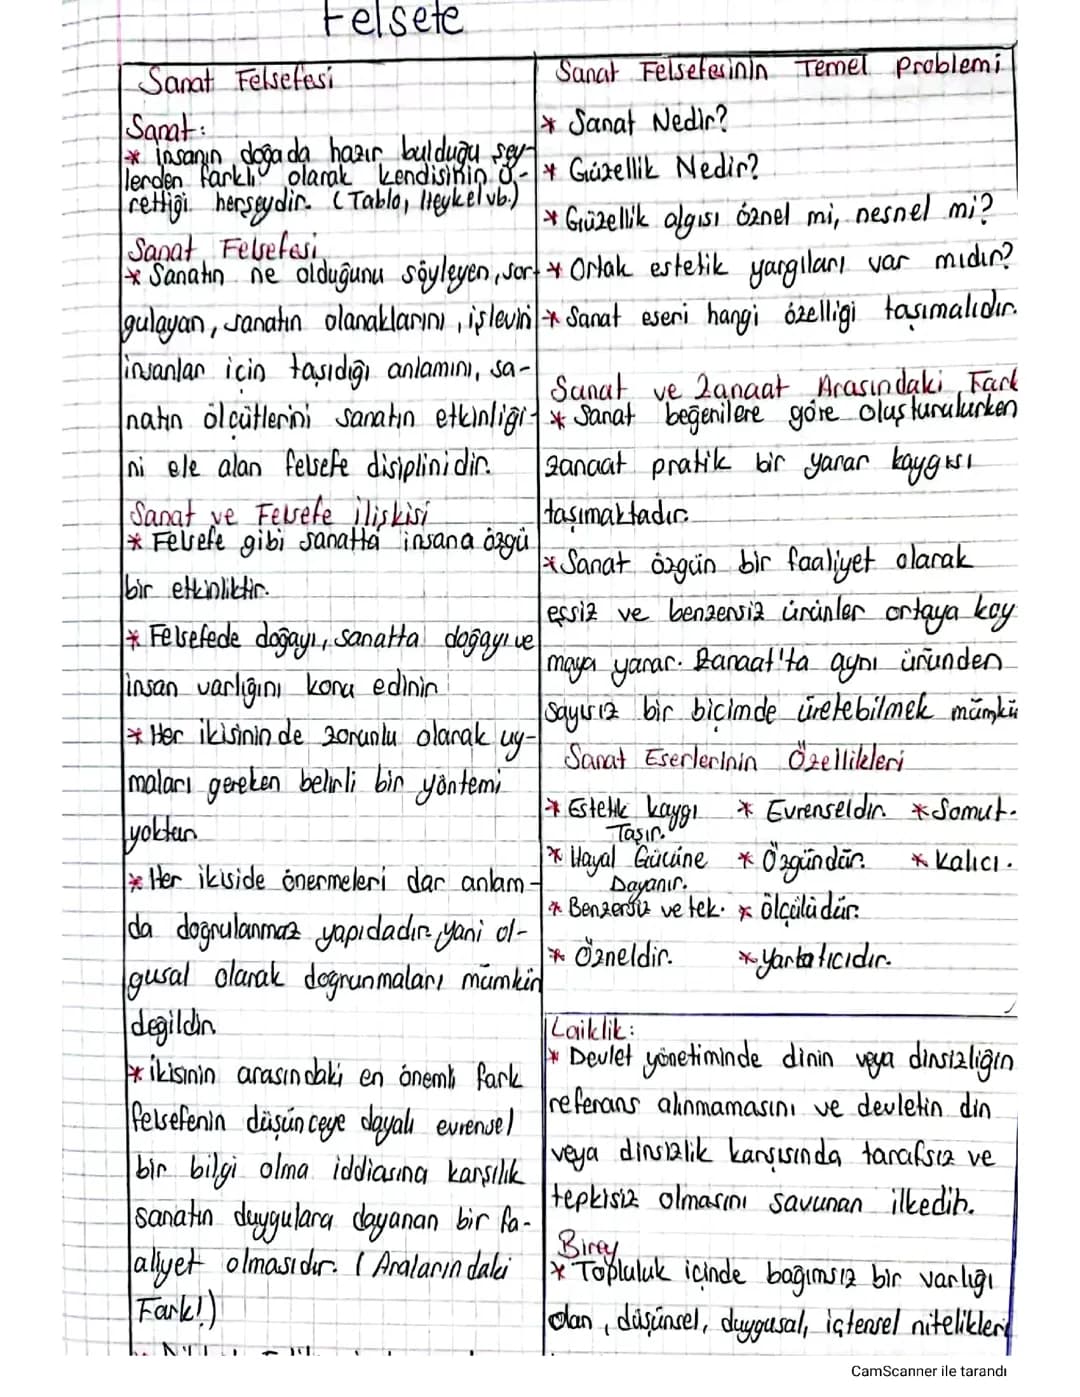 Felsefe
Sanat Felsefesi
Sanat:
* insanın doğada hazır bulduğu şey-
lerden farklı olarak kendisinin ü-
rettiği herşeydir. (Tablo, Heykel vb.)
Sanat Felsefesi
* Sanatın ne olduğunu söyleyen, sor-
gulayan, sanatın olanaklarını, işlevin
insanlar için taşıdığı anlamını, sa-
natın ölçütlerini sanatın etkinliği-
ni ele alan felsefe disiplinidir.
Sanat ve Felsefe ilişkisi
* Felsefe gibi sanatta insana özgü
bir etkinliktir.
* Felsefede doğayı, sanatta doğayı ve
insan varlığını konu edinir
* Her ikisinin de zorunlu olarak uy-
maları gereken belirli bir yöntemi
yoktur
* Her ikiside önermeleri dar anlam-
da doğrulanmaz yapıdadır yani ol-
gusal olarak doğrunmaları mümkün
değildir
* ikisinin arasındaki en önemli fark
felsefenin düşünceye dayalı evrensel
bir bilgi olma iddiasına karşılık
sanatın duygulara dayanan bir fa-
aliyet olmasıdır. (Aralarındaki
Fark!)
Sanat Felsefesinin Temel Problemi
* Sanat Nedir?
* Güzellik Nedir?
* Güzellik algısı öznel mi, nesnel mi?
* Ortak estetik yargıları var mıdır?
* Sanat eseri hangi özelliği taşımalıdır.
Sanat ve Zanaat Arasındaki Fark
* Sanat beğenilere göre oluşturulurken
zanaat pratik bir yarar kaygısı
taşımaktadır.
* Sanat özgün bir faaliyet olarak
eşsiz ve benzersiz ürünler ortaya koy
maya yarar. Zanaat'ta aynı üründen
sayısız bir biçimde üretebilmek mümkü
Sanat Eserlerinin Özellikleri
* Estetik kaygı * Evrenseldir * Somut.
Taşır.
* Hayal Gücüne * Özgündür. * Kalıcı.
Dayanır.
* Benzersiz ve tek. * ölçülüdür.
* Özneldir. * Yartatıcıdır.
Laiklik:
* Devlet yönetiminde dinin veya dinsizliğin
referans alınmamasını ve devletin din
veya dinsizlik karşısında tarafsız ve
tepkisiz olmasını savunan ilkedir.
Birey
* Topluluk içinde bağımsız bir varlığı
olan, düşünsel, duygusal, içtensel nitelikleri
CamScanner ile tarandı